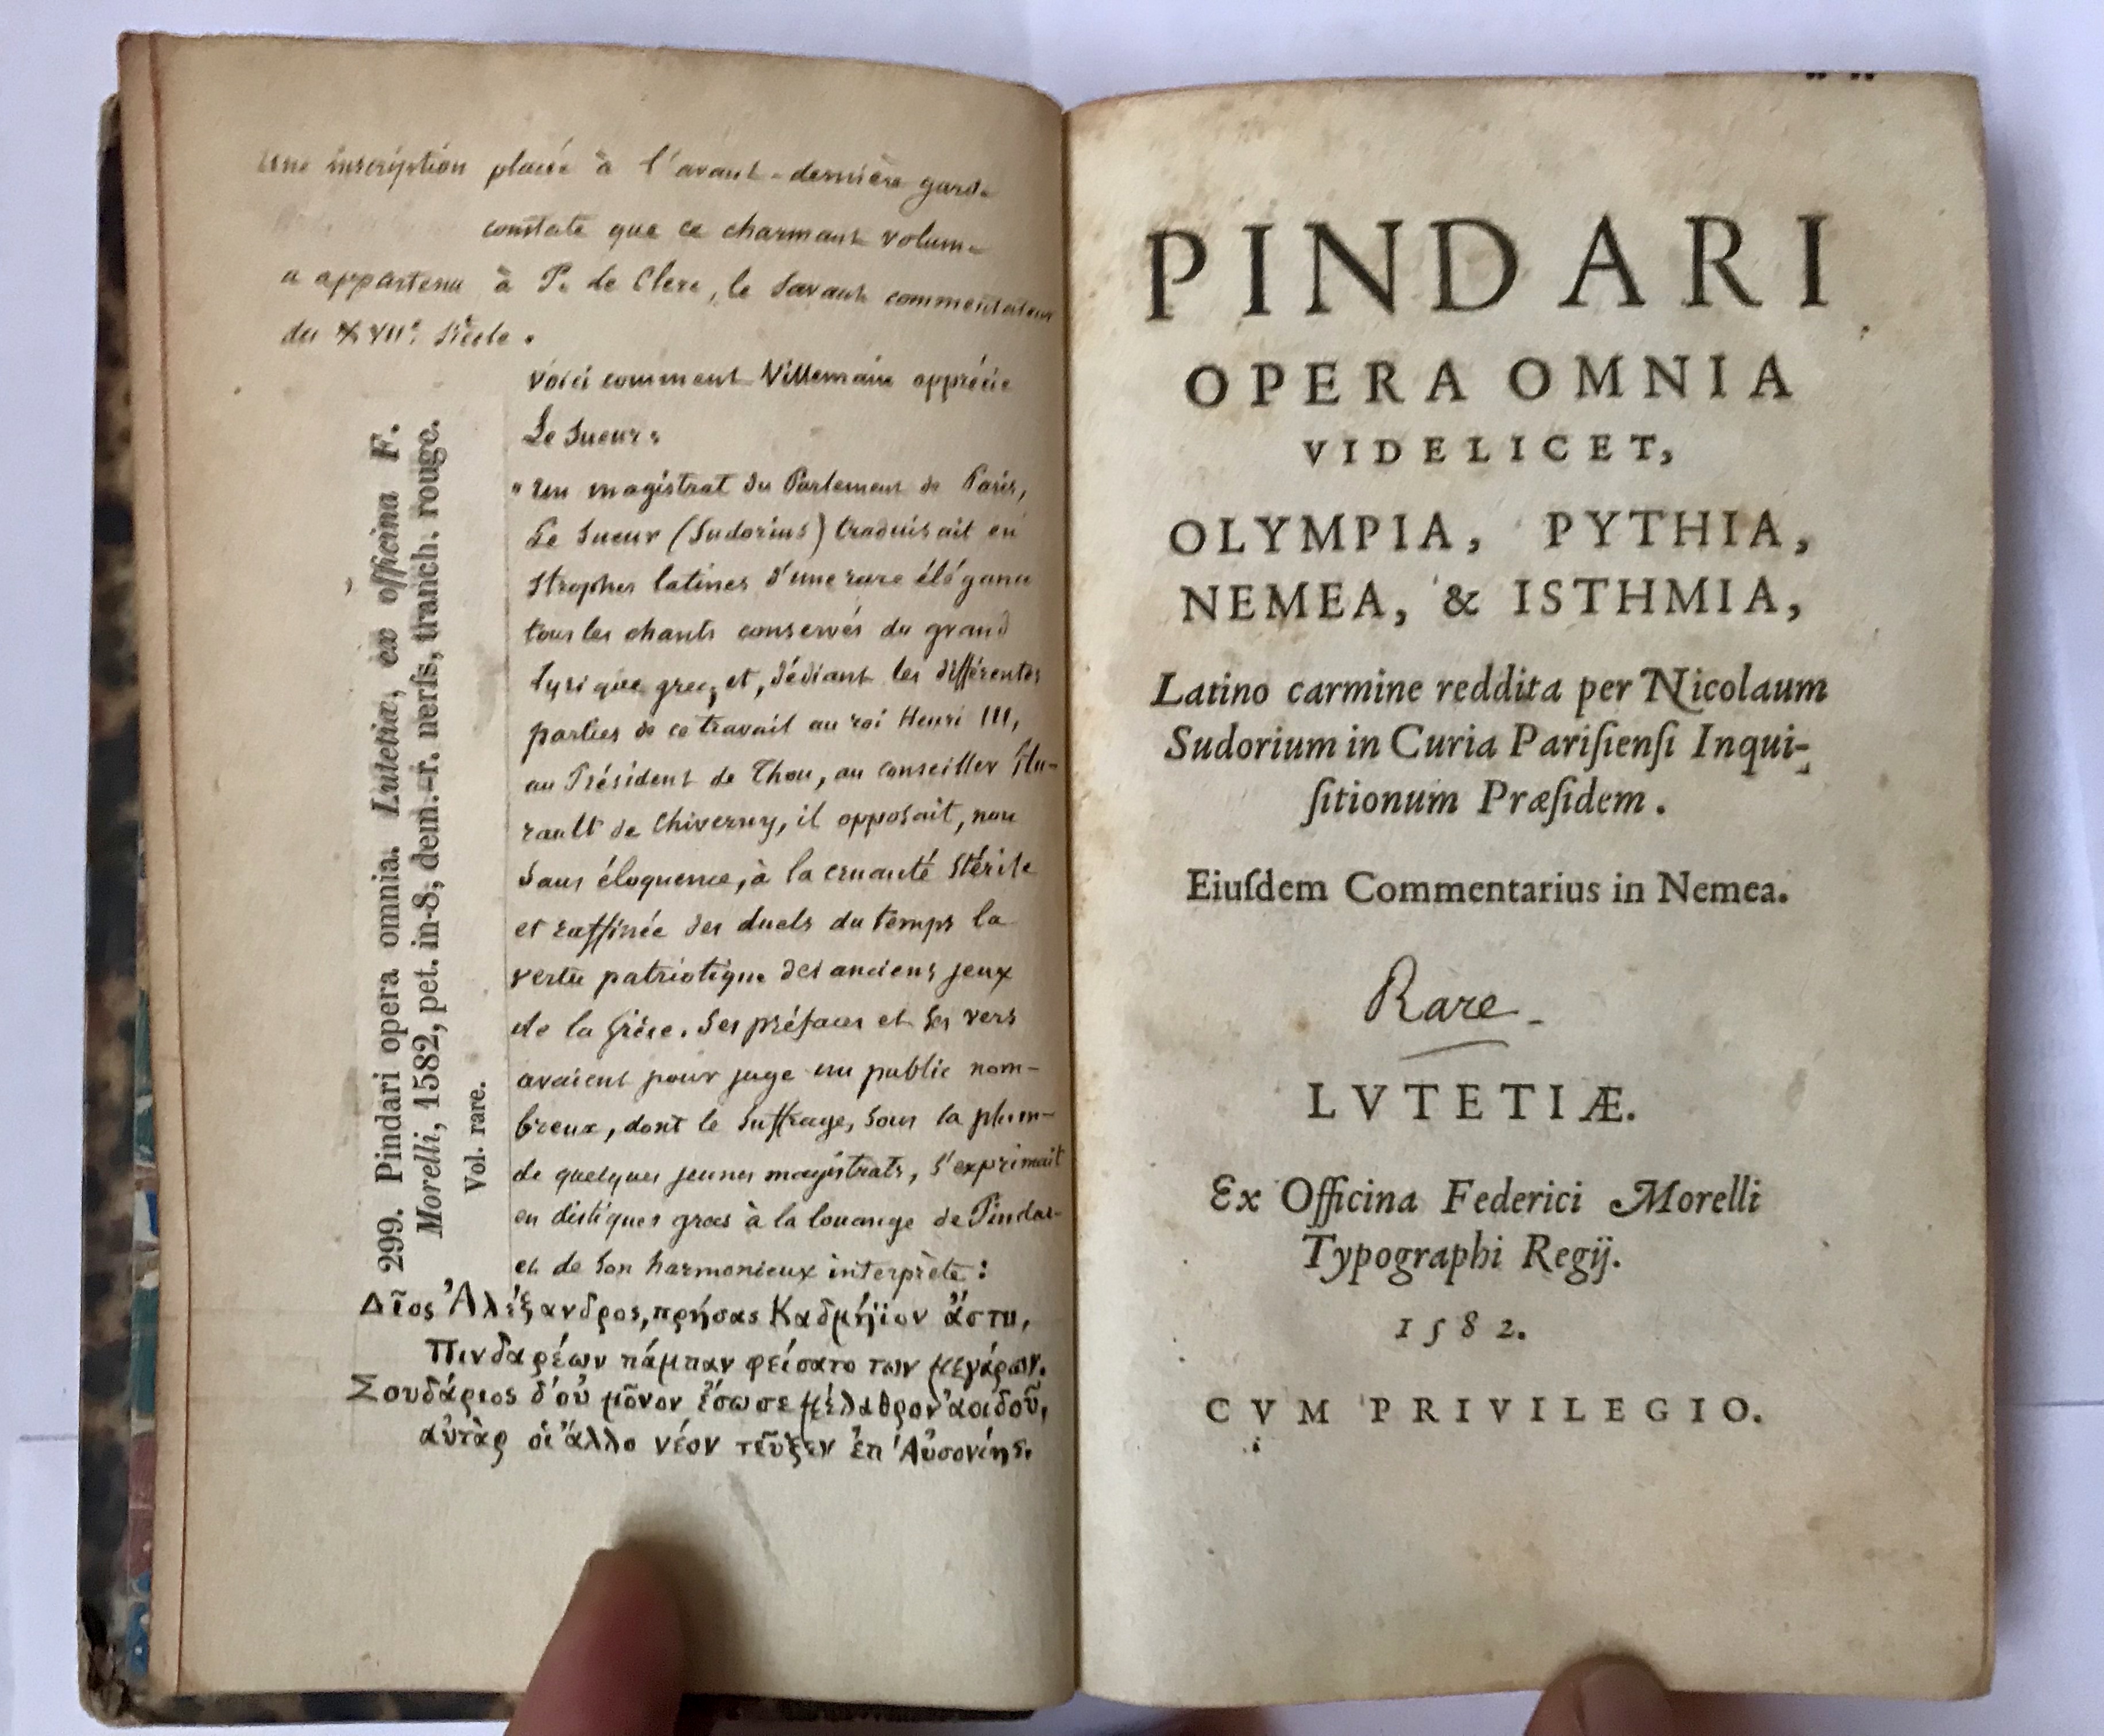 une inscription placée à l'avant-dernière garde
constate que ce charmant volume
a appartenu à P. de Clerc, le savant commentateur
du XVIIe. Siècle.
Voici comment Villemain apprécie
Le Sueur:
"Un magistrat du Parlement de Paris,
Le Sueur (Sudorius) traduisait en
strophes latines d'une rare élégance
tous les chants conservés du grand
lyrique grec, et, dédiant les différentes
parties de ce travail au roi Henri III,
au Président de Thou, au conseiller Hu-
rault de Chiverny, il opposait, non
sans éloquence, à la cruauté stérile
et raffinée des duels du temps la
vertu patriotique des anciens jeux
de la Grèce. Ses préfaces et ses vers
avaient pour juge un public nom-
breux, dont le suffrage, sous la plume
de quelques jeunes magistrats, s'exprimait
en distiques grecs à la louange de Pindare
et de son harmonieux interprète:
Δῖος Ἀλέξανδρος, πρήσας Καδμήϊον ἄστυ,
Πινδαρέων πάμπαν φείσατο των μεγάρων.
Σουδάριος δ'οὐ μοῦνον ἔσωσε μέλαθρον ἀοιδοῦ,
αὐτὰρ οἱ ἄλλο νέον τεῦξεν ἐπ' Αὐσονίης.
299. Pindari opera omnia. Lutetiæ, ex officina F.
Morelli, 1582, pet. in-8, dem.-r. nerfs, tranch. rouge.
Vol. rare.
PINDARI
OPERA OMNIA
VIDELICET,
OLYMPIA, PYTHIA,
NEMEA, & ISTHMIA,
Latino carmine reddita per Nicolaum
Sudorium in Curia Pariſienſi Inqui-
ſitionum Præſidem.
Eiuſdem Commentarius in Nemea.
Rare.
LVTETIÆ.
Ex Officina Federici Morelli
Typographi Regij.
1582.
CVM PRIVILEGIO.